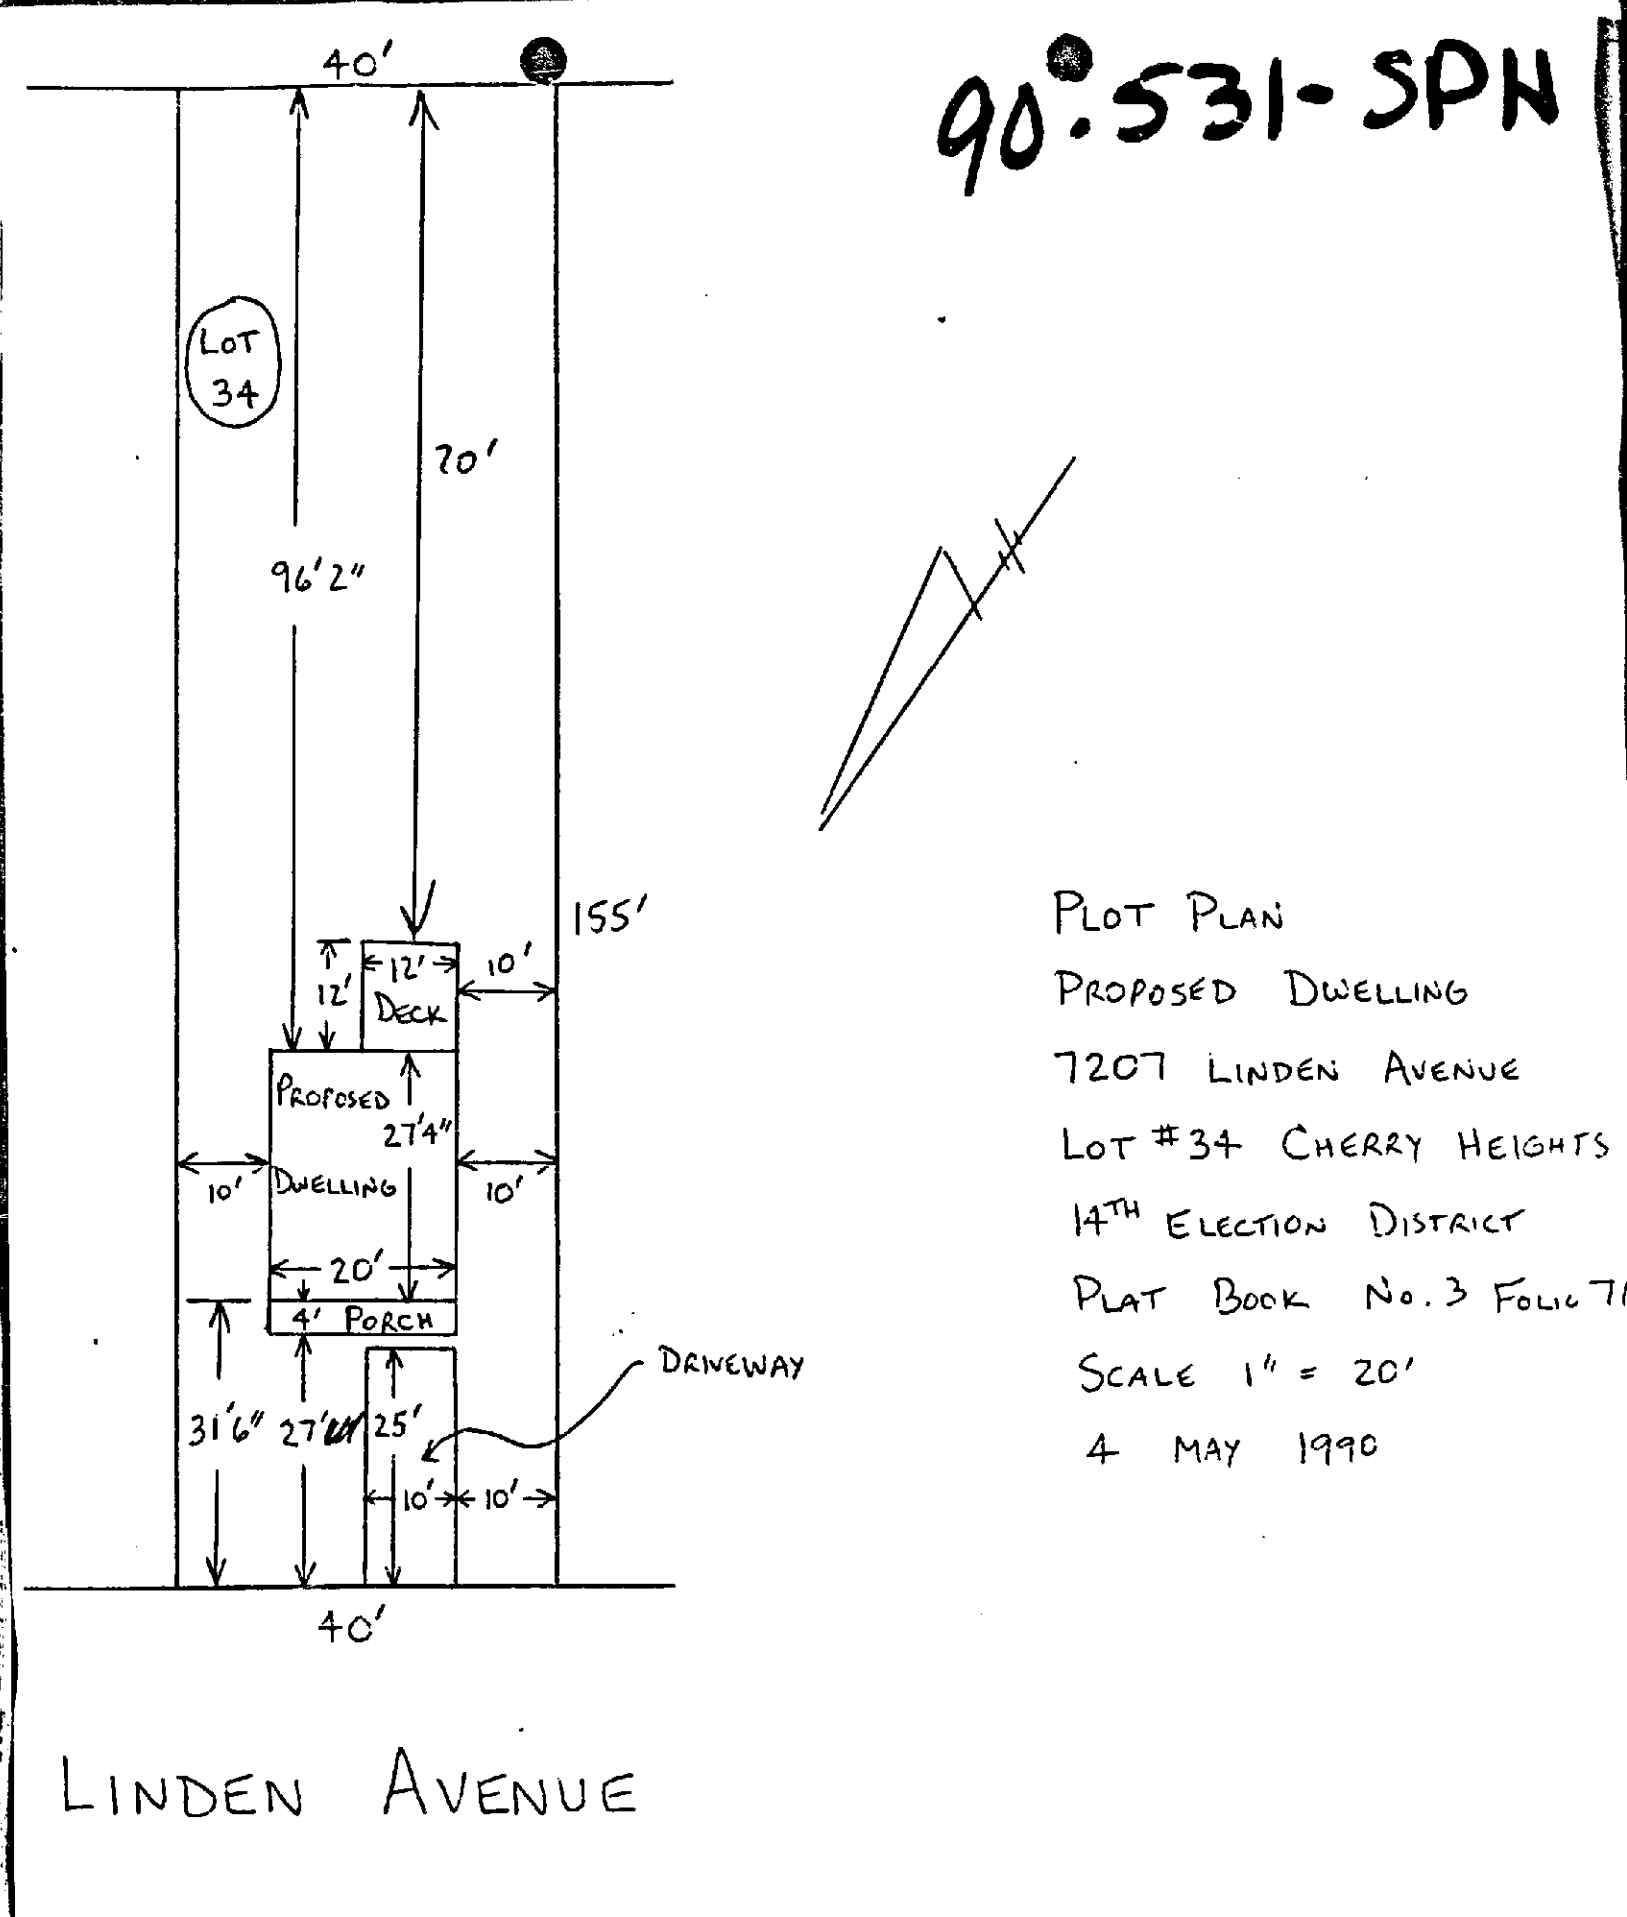 90-531-SPH
40'
LOT
34
70'
96'2"
155'
12'
12'
DECK
10'
PROPOSED
DWELLING
27'4"
10'
10'
20'
4' PORCH
DRIVEWAY
31'6"
27'
25'
10'
10'
40'
LINDEN AVENUE
PLOT PLAN
PROPOSED DWELLING
7207 LINDEN AVENUE
LOT #34 CHERRY HEIGHTS
14TH ELECTION DISTRICT
PLAT BOOK NO. 3 FOLIO
SCALE 1" = 20'
4 MAY 1990